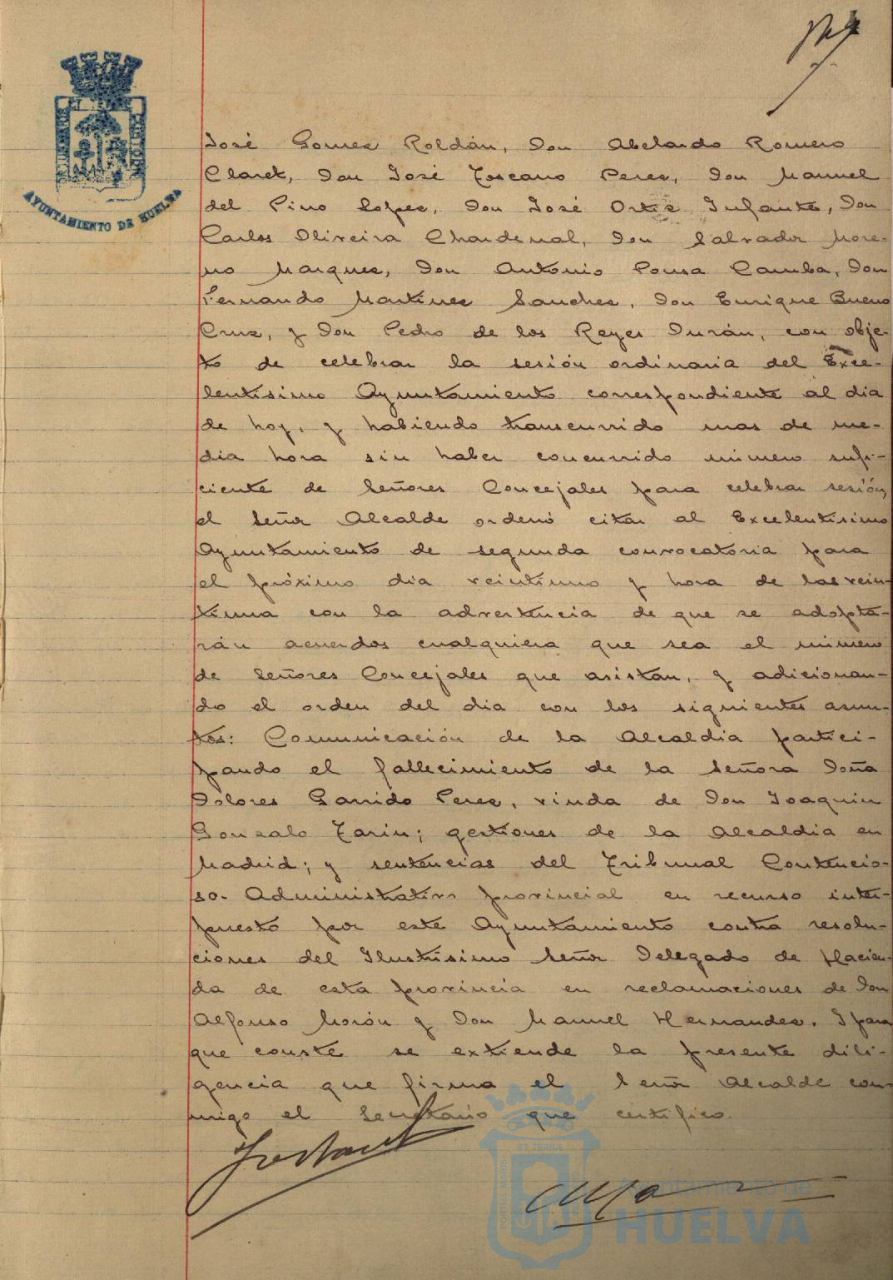 AYUNTAMIENTO DE HUELVA
José Gomez Roldán, Don Abelardo Romero
Claret, Don José Toscano Perez, Don Manuel
del Pino Lopez, Don José Ortiz Infante, Don
Carlos Oliveira Chardenal, Don Salvador More-
no Marquez, Don Antonio Pousa Camba, Don
Fernando Martinez Sanchez, Don Enrique Bueno
Cruz, y Don Pedro de los Reyes Durán, con obje-
to de celebrar la sesión ordinaria del Exce-
lentisimo Ayuntamiento correspondiente al dia
de hoy, y habiendo transcurrido mas de me-
dia hora sin haber concurrido número sufi-
ciente de Señores Concejales para celebrar sesión,
el Señor Alcalde ordenó citar al Excelentisimo
Ayuntamiento de segunda convocatoria para
el próximo dia veintiuno y hora de las vein-
tiuna con la advertencia de que se adopta-
rán acuerdos cualquiera que sea el número
de Señores Concejales que asistan, y adicionan-
do el orden del dia con los siguientes asun-
tos: Comunicación de la Alcaldia partici-
pando el fallecimiento de la Señora Doña
Dolores Garrido Perez, viuda de Don Joaquin
Gonzalo Tarin; gestiones de la Alcaldia en
Madrid; y sentencias del Tribunal Contencio-
so-Administrativo provincial en recurso inter-
puesto por este Ayuntamiento contra resolu-
ciones del Ilustrisimo Señor Delegado de Hacien-
da de esta provincia en reclamaciones de Don
Alfonso Morón y Don Manuel Hernandez. Y para
que conste se extiende la presente dili-
gencia que firma el Señor Alcalde con-
migo el Secretario que certifico.
Ayuntamiento de
HUELVA